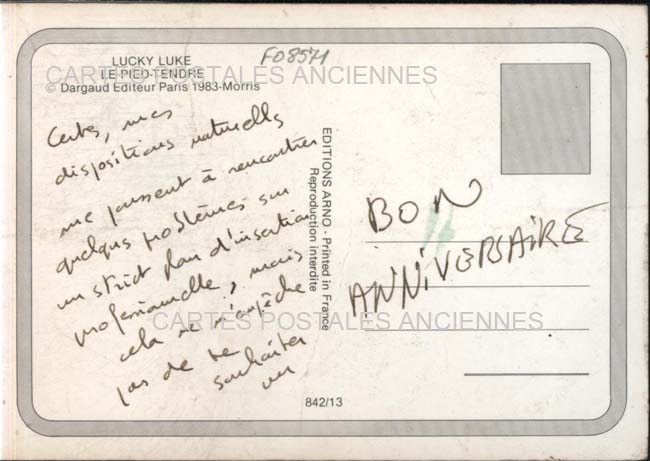 LUCKY LUKE
LE PIED-TENDRE
© Dargaud Editeur Paris 1983-Morris
F08571
CARTES POSTALES ANCIENNES
Certes, mes
dispositions naturelles
me poussent à rencontrer
quelques problèmes sur
un strict plan d'insertion
professionnelle, mais
cela ne m'empêche
pas de te
souhaiter
un
EDITIONS ARNO - Printed in France
Reproduction interdite
BON
ANNIVERSAIRE
CARTES POSTALES ANCIENNES
842/13